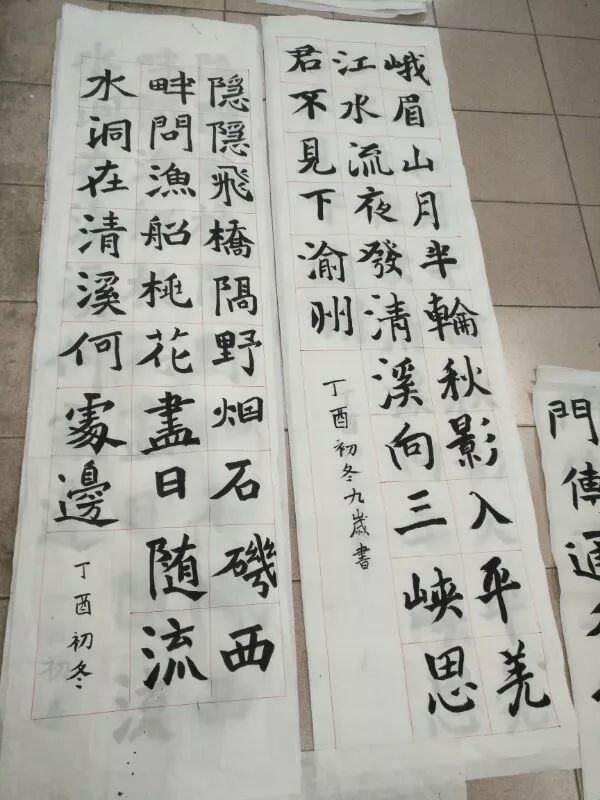 門傳通
峨眉山月半輪秋影入平羌
江水流夜發清溪向三峽思
君不見下渝州
丁酉初冬九歲書
隱隱飛橋隔野烟石磯西
畔問漁船桃花盡日随流
水洞在清溪何處邊
丁酉初冬